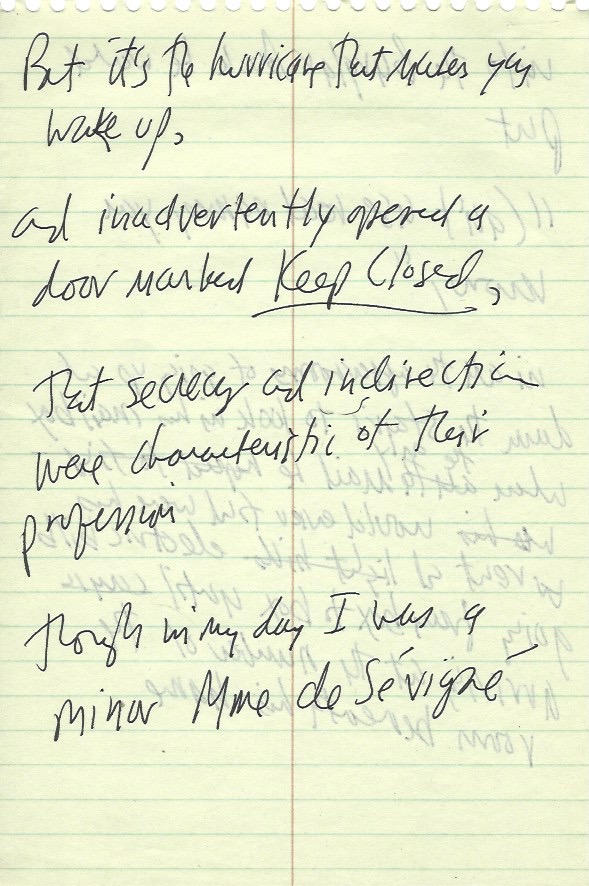 But it's the hurricane that makes you
wake up,
and inadvertently opened a
door marked Keep Closed,
that secrecy and indirection
were characteristic of their
profession
though in my day I was a
minor Mme de Sévigné